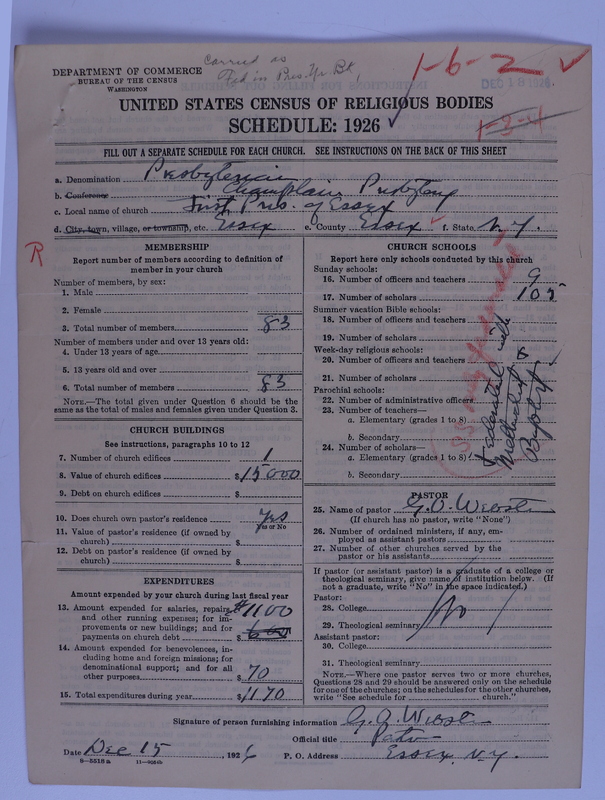 Carried as
Fed in Pres. Yr Bk,
1-6-2 ✓
DEPARTMENT OF COMMERCE
BUREAU OF THE CENSUS
WASHINGTON
DEC 18 1926
UNITED STATES CENSUS OF RELIGIOUS BODIES
SCHEDULE: 1926 ✓
1-3-4
FILL OUT A SEPARATE SCHEDULE FOR EACH CHURCH. SEE INSTRUCTIONS ON THE BACK OF THIS SHEET
a. Denomination Presbyterian
b. Conference Champlain Presbytery
c. Local name of church First Pres. of Essex
d. City, town, village, or township, etc. Essex e. County Essex ✓ f. State N.Y.
R
MEMBERSHIP
Report number of members according to definition of
member in your church
Number of members, by sex:
1. Male
2. Female
3. Total number of members 83
Number of members under and over 13 years old:
4. Under 13 years of age
5. 13 years old and over
6. Total number of members 83
NOTE.—The total given under Question 6 should be
same as the total of males and females given under Question 3.
CHURCH BUILDINGS
See instructions, paragraphs 10 to 12
7. Number of church edifices 1
8. Value of church edifices $15000
9. Debt on church edifices $
10. Does church own pastor's residence Yes
Yes or No
11. Value of pastor's residence (if owned by
church) $
12. Debt on pastor's residence (if owned by
church) $
EXPENDITURES
Amount expended by your church during last fiscal year
13. Amount expended for salaries, repairs, $1100
and other running expenses; for im-
provements or new buildings; and for
payments on church debt $
14. Amount expended for benevolences, in-
cluding home and foreign missions; for
denominational support; and for all
other purposes $70
15. Total expenditures during year $1170
CHURCH SCHOOLS
Report here only schools conducted by this church
Sunday schools:
16. Number of officers and teachers 9
17. Number of scholars 105
Summer vacation Bible schools:
18. Number of officers and teachers
19. Number of scholars
Week-day religious schools:
20. Number of officers and teachers
21. Number of scholars
Parochial schools:
22. Number of administrative officers
23. Number of teachers—
a. Elementary (grades 1 to 8)
b. Secondary
24. Number of scholars—
a. Elementary (grades 1 to 8)
b. Secondary
Federated with
Methodist &
Baptist
PASTOR
25. Name of pastor G.O. Webster
(If church has no pastor, write "None")
26. Number of ordained ministers, if any, em-
ployed as assistant pastors
27. Number of other churches served by the
pastor or his assistants
If pastor (or assistant pastor) is a graduate of a college or
theological seminary, give name of institution below. (If
not a graduate, write "No" in the space indicated.)
Pastor:
28. College
No
29. Theological seminary
Assistant pastor:
30. College
31. Theological seminary
NOTE.—Where one pastor serves two or more churches,
Questions 28 and 29 should be answered only on the schedule
for one of the churches; on the schedules for the other churches,
write "See schedule for church."
Signature of person furnishing information G.O. Webster
Official title Pastor
Date Dec 15, 1926 P. O. Address Essex, N.Y.
8—5518a 11—9084b